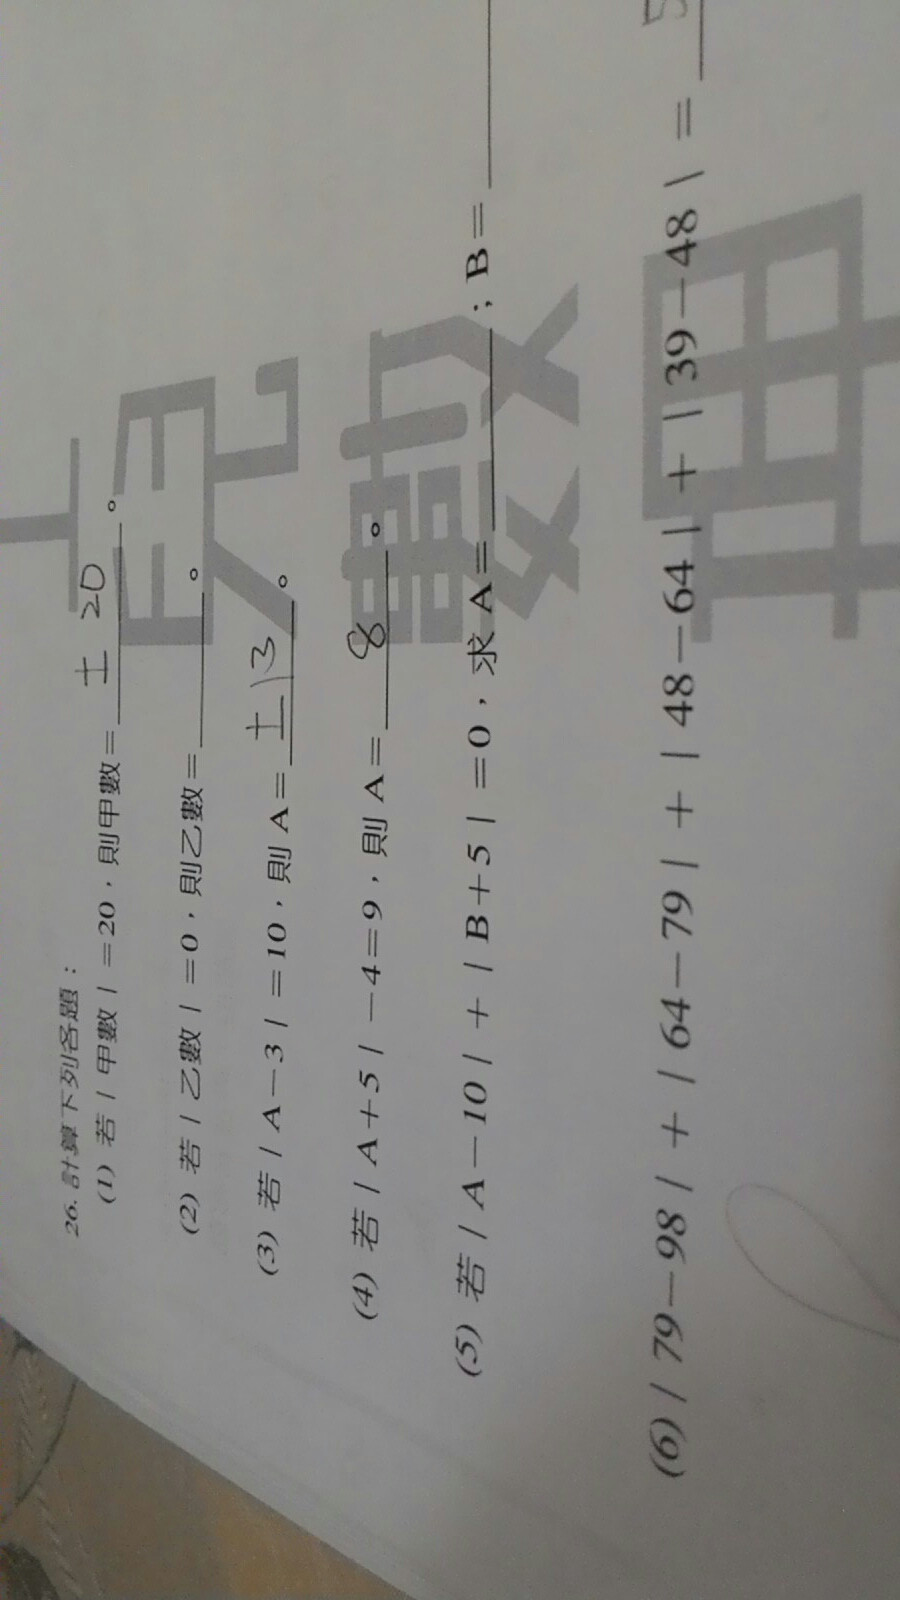 26. 計算下列各題：
(1) 若｜甲數｜=20，則甲數= ±20 。
(2) 若｜乙數｜=0，則乙數= 。
(3) 若｜A－3｜=10，則 A= ±13 。
(4) 若｜A+5｜－4=9，則 A= 8 。
(5) 若｜A－10｜+｜B+5｜=0，求 A= ；B=
(6)｜79－98｜+｜64－79｜+｜48－64｜+｜39－48｜= 5